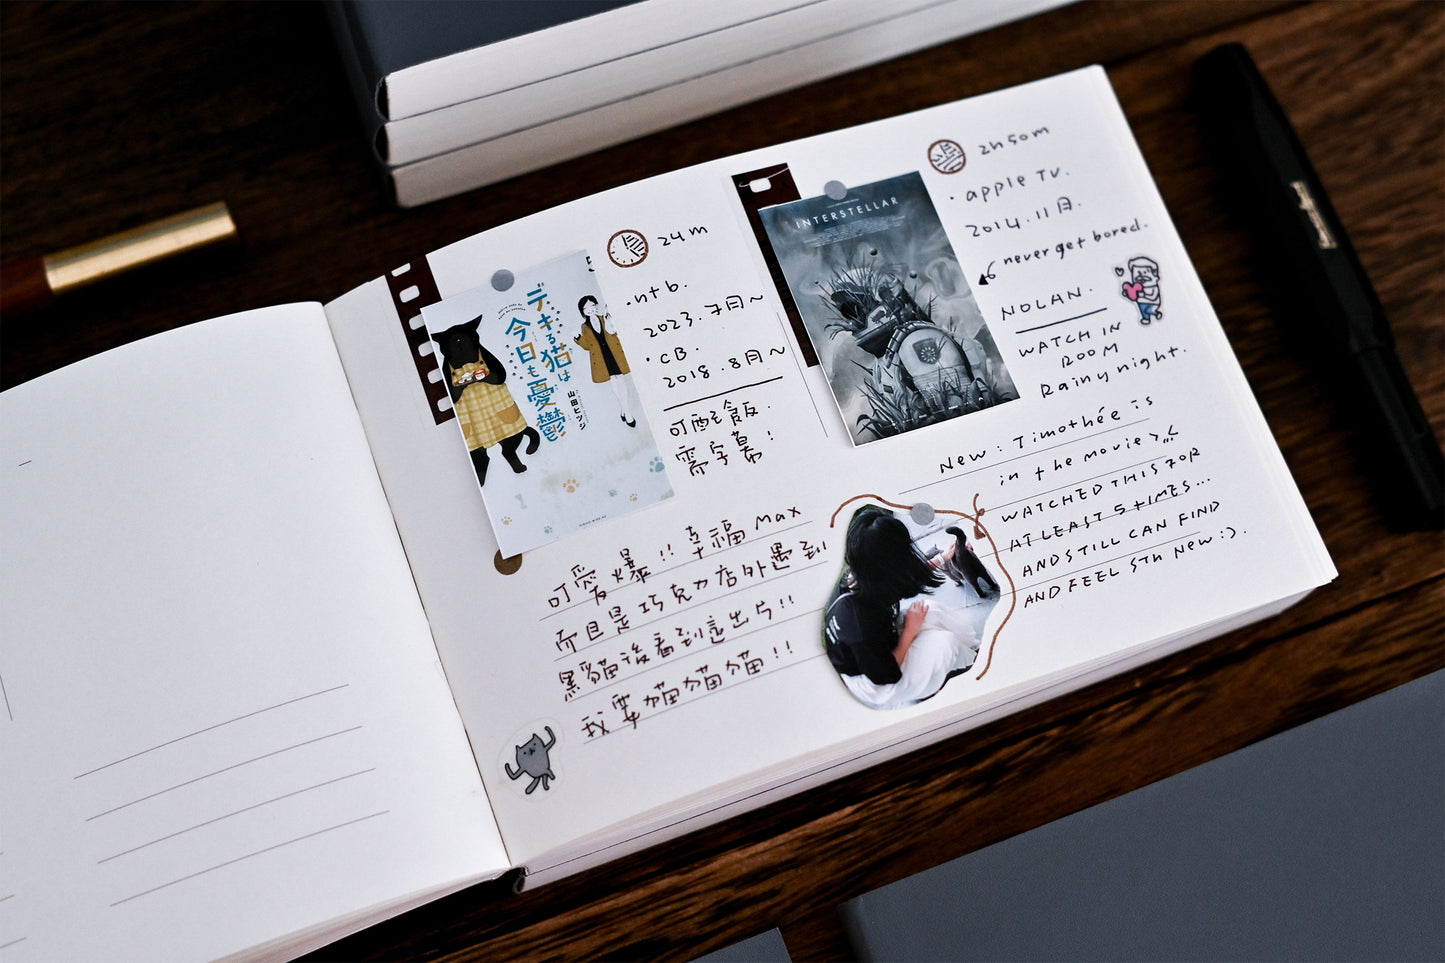 24m
・ntb.
2023.7月~
・CB.
2018.8月~
可配飯.
需字幕!
デキる猫は
今日も憂鬱
山田ヒツジ
可愛爆!! 幸福max
而且是巧克力店外遇到
黑貓後看到這出片!!
我要貓貓貓!!
2h50m
・apple TV.
2014.11月.
never get bored.
NOLAN.
WATCH IN
ROOM
Rainy night.
INTERSTELLAR
New : Timothée is
in the movie
WATCHED THIS FOR
AT LEAST 5 tIMES...
AND STILL CAN FIND
AND FEEL STH New :).